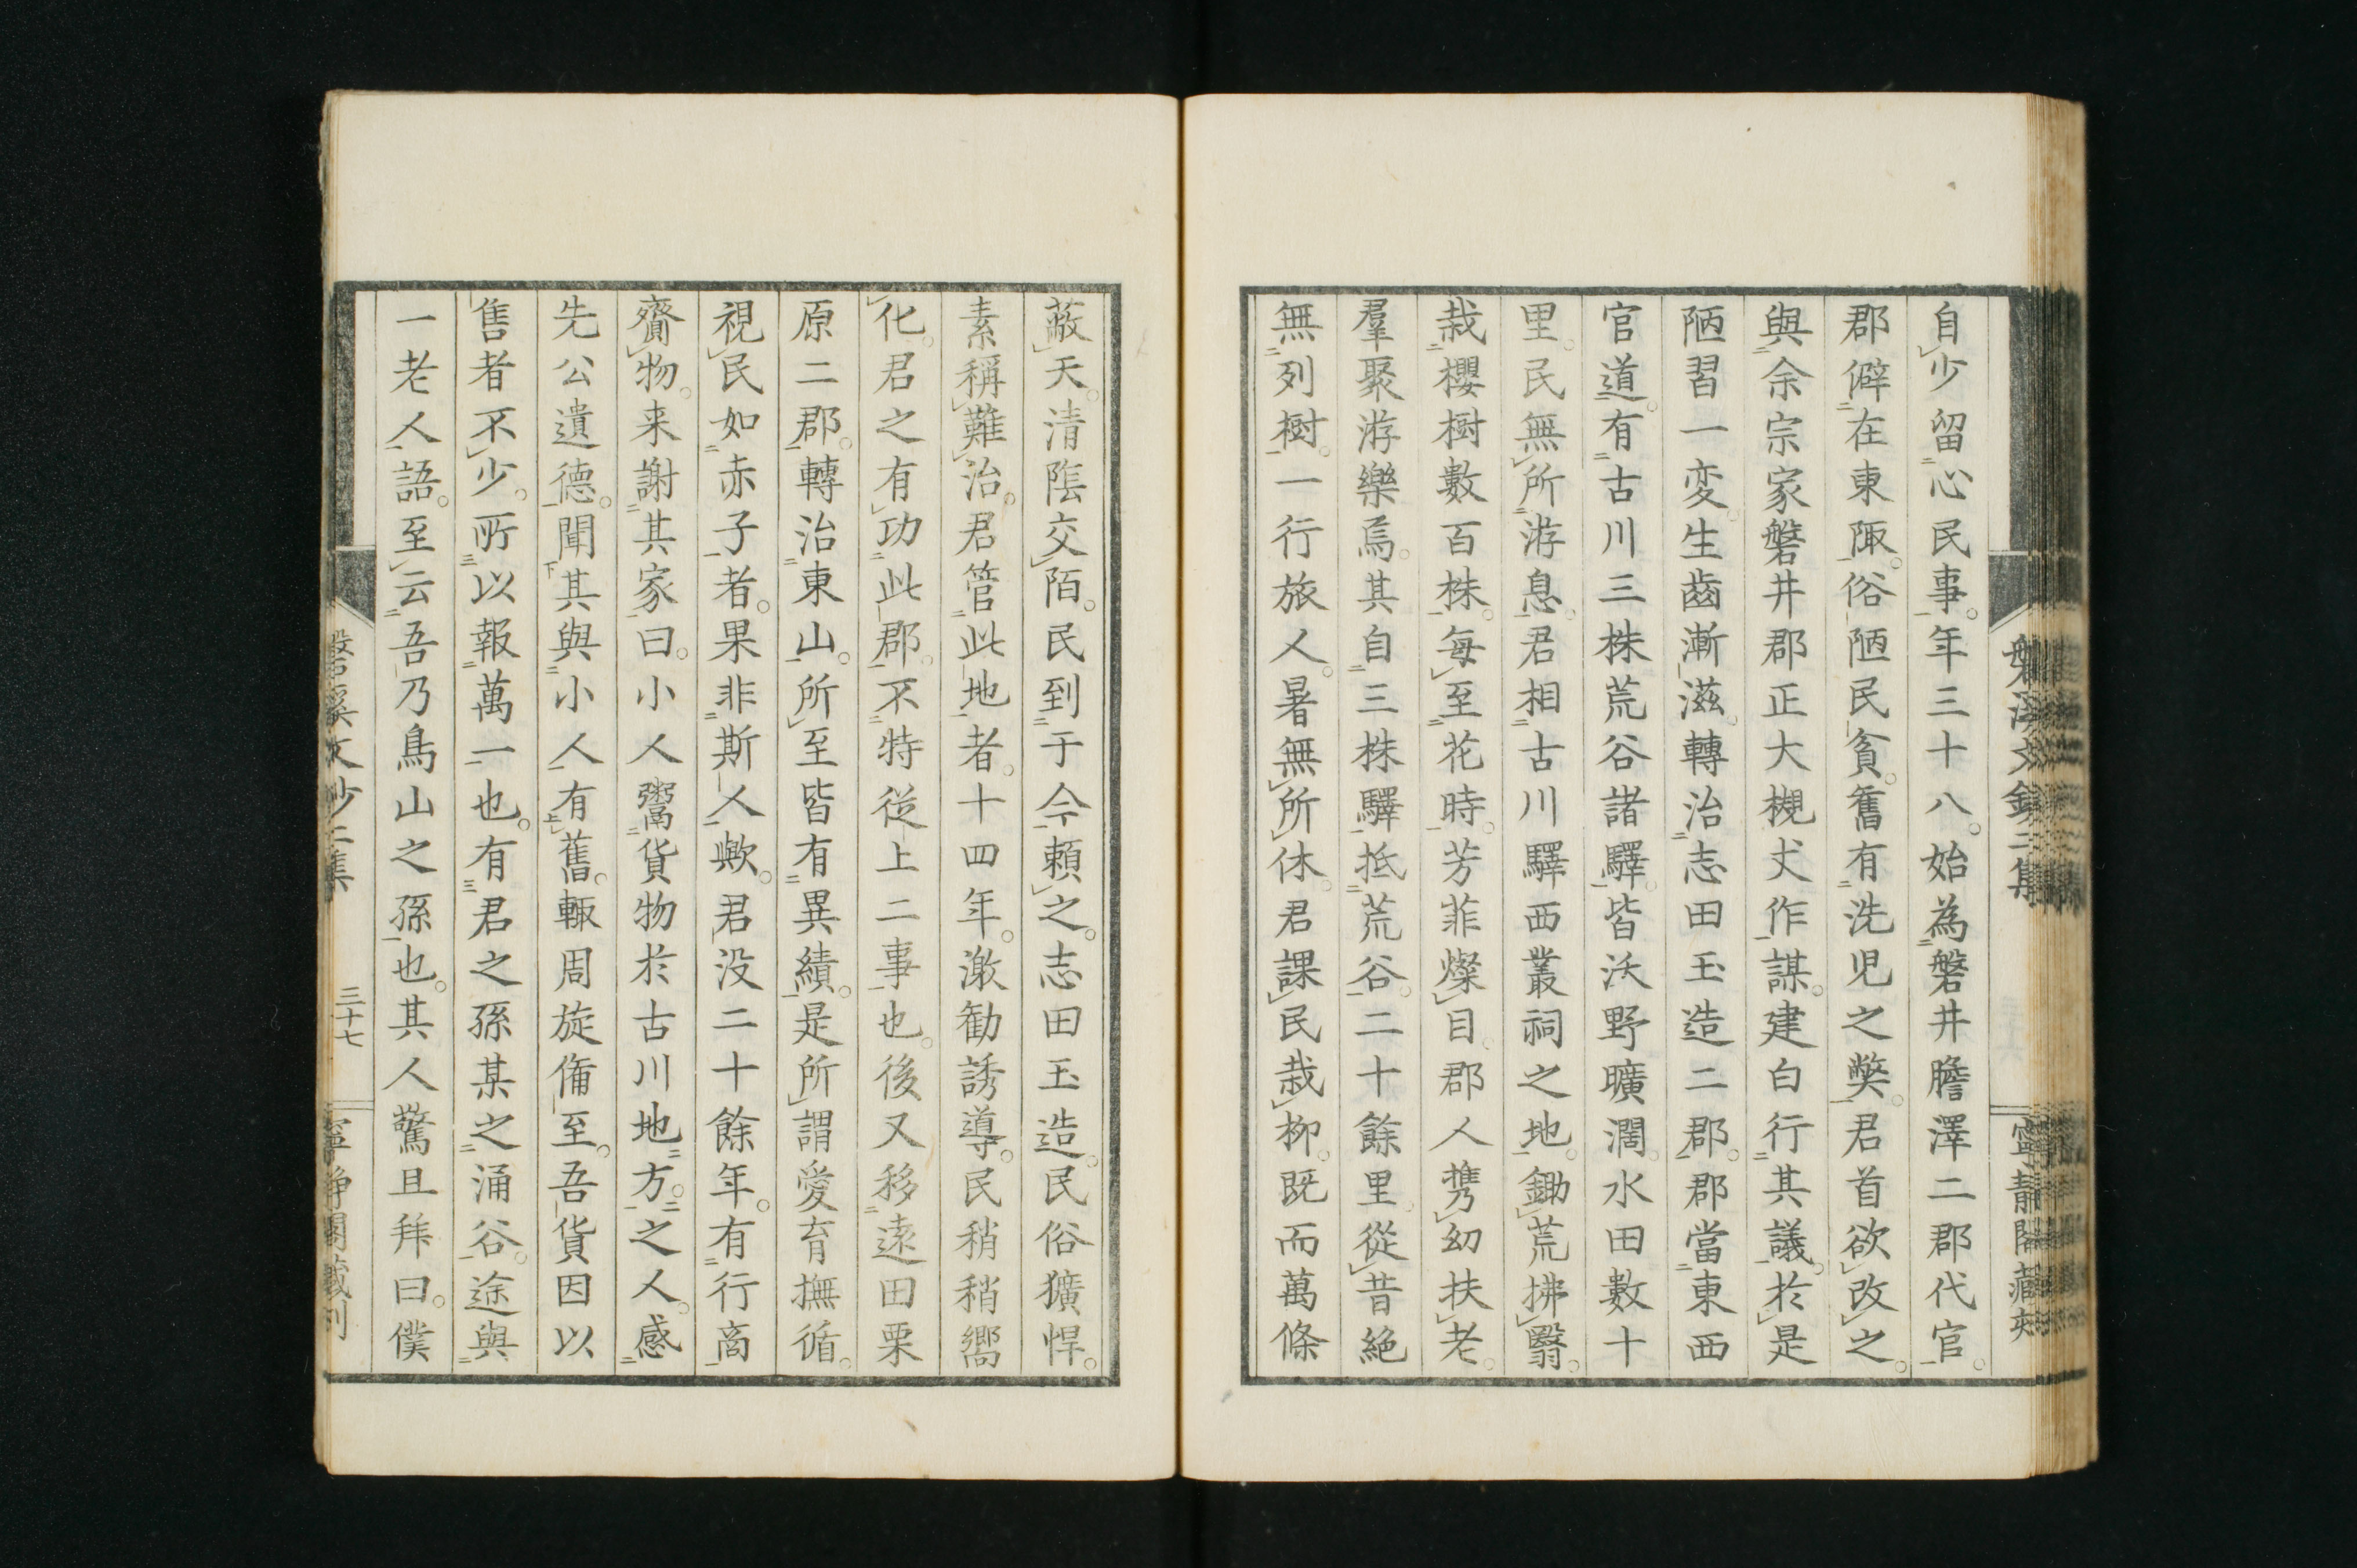 自少留心民事。年三十八。始為磐井膽澤二郡代官。
郡僻在東陬。俗陋民貧。舊有洗児之弊。君首欲改之。
與余宗家磐井郡正大槻丈作謀。建白行其議。於是
陋習一変。生齒漸滋。轉治志田玉造二郡。郡當東西
官道。有古川三株荒谷諸驛。皆沃野曠濶。水田數十
里。民無所游息。君相古川驛西叢祠之地。鋤荒拂翳。
栽櫻樹數百株。每至花時。芳菲燦目。郡人携幼扶老。
羣聚游樂焉。其自三株驛抵荒谷。二十餘里。從昔絶
無列樹。一行旅人。暑無所休。君課民栽柳。既而萬條
蔽天。清陰交陌。民到于今頼之。志田玉造。民俗獷悍。
素稱難治。君管此地者。十四年。激勧誘導。民稍稍嚮
化。君之有功此郡。不特從上二事也。後又移遠田栗
原二郡。轉治東山。所至皆有異績。是所謂愛育撫循。
視民如赤子者。果非斯人歟。君没二十餘年。有行商
齎物。来謝其家。曰。小人鬻貨物於古川地方。之人。感
先公遺德。聞其與小人有舊。輙周旋備至。吾貨因以
售者不少。所以報萬一也。有君之孫某之涌谷。途與
一老人語。至云吾乃鳥山之孫也。其人驚且拜曰。僕
磐溪文鈔二集
三十七
寧静閣蔵刻